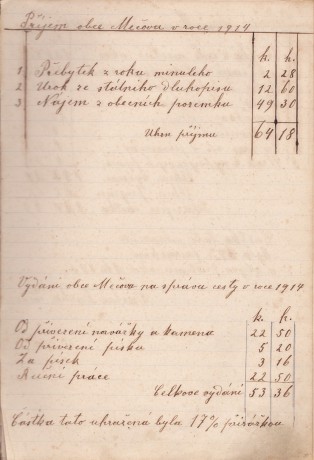 Příjem obce Mečova v roce 1914
k. h.
1 Přebytek z roku minulého 2 28
2 Urok ze státního dluhopisu 12 60
3 Nájem z obecních pozemku 49 30
Uhrn příjmu 64 18
Vydání obce Mečova na správu cesty v roce 1914
k. h.
Od přivezení naváčky a kamena 22 50
Od přivezení písku 5 20
Za písek 3 16
Ruční práce 22 50
Celkove vydání 53 36
Částka tato uhražená byla 17% přirážkou